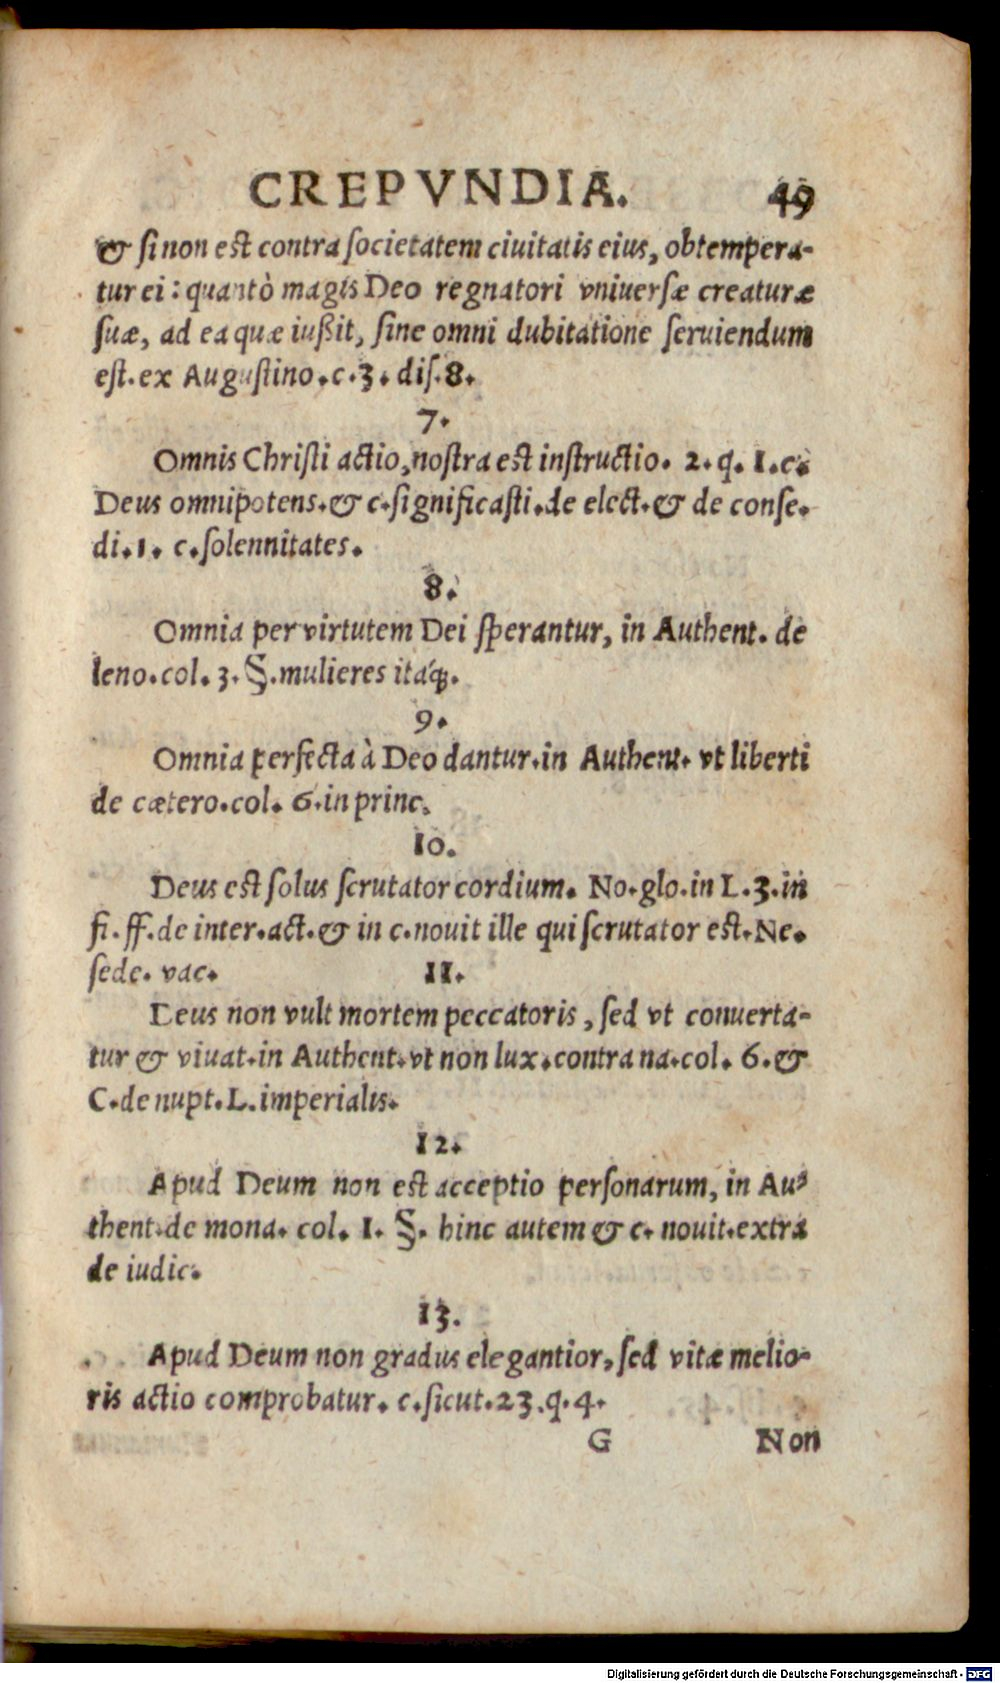 CREPVNDIA. 49
& ſi non eſt contra ſocietatem ciuitatis eius, obtempera-
tur ei: quantò magis Deo regnatori vniuerſæ creaturæ
ſuæ, ad ea quæ iußit, ſine omni dubitatione ſeruiendum
eſt. ex Auguſtino. c. 3. diſ. 8.
7.
Omnis Chriſti actio, noſtra eſt inſtructio. 2. q. 1. c.
Deus omnipotens. & c. ſignificaſti. de elect. & de conſe.
di. 1. c. ſolennitates.
8.
Omnia per virtutem Dei ſperantur, in Authent. de
leno. col. 3. §. mulieres itáq;.
9.
Omnia perfecta à Deo dantur. in Authent. vt liberti
de cætero. col. 6. in princ.
10.
Deus eſt ſolus ſcrutator cordium. No. glo. in L. 3. in
fi. ff. de inter. act. & in c. nouit ille qui ſcrutator eſt. Ne.
ſede. vac. 11.
Deus non vult mortem peccatoris, ſed vt conuerta-
tur & viuat. in Authent. vt non lux. contra na. col. 6. &
C. de nupt. L. imperialis.
12.
Apud Deum non eſt acceptio perſonarum, in Au-
thent. de mona. col. 1. §. hinc autem & c. nouit. extra
de iudic.
13.
Apud Deum non gradus elegantior, ſed vitæ melio-
ris actio comprobatur. c. ſicut. 23. q. 4.
G Non
Digitalisierung gefördert durch die Deutsche Forschungsgemeinschaft - DFG